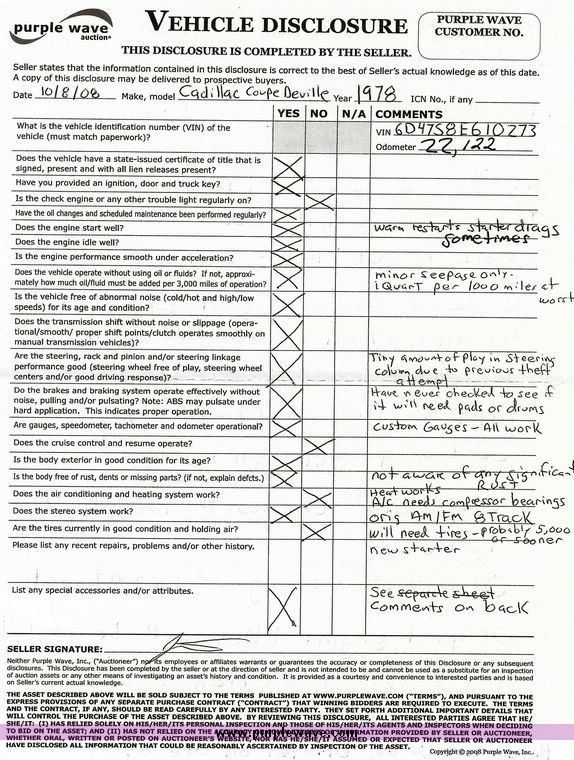 purple wave
auction®
VEHICLE DISCLOSURE
THIS DISCLOSURE IS COMPLETED BY THE SELLER.
PURPLE WAVE
CUSTOMER NO.
Seller states that the information contained in this disclosure is correct to the best of Seller's actual knowledge as of this date.
A copy of this disclosure may be delivered to prospective buyers.
Date 10/8/08 Make, model Cadillac Coupe Deville Year 1978 ICN No., if any
YES NO N/A COMMENTS
What is the vehicle identification number (VIN) of the
vehicle (must match paperwork)?
VIN 6D47S8E610273
Odometer 22,122
Does the vehicle have a state-issued certificate of title that is
signed, present and with all lien releases present?
Have you provided an ignition, door and truck key?
Is the check engine or any other trouble light regularly on?
Have the oil changes and scheduled maintenance been performed regularly?
Does the engine start well?
warm restarts starter drags
sometimes
Does the engine idle well?
Is the engine performance smooth under acceleration?
Does the vehicle operate without using oil or fluids? If not, approxi-
mately how much oil/fluid must be added per 3,000 miles of operation?
minor seepage only.
1 Quart per 1000 miles at
worst
Is the vehicle free of abnormal noise (cold/hot and high/low
speeds) for its age and condition?
Does the transmission shift without noise or slippage (opera-
tional/smooth/ proper shift points/clutch operates smoothly on
manual transmission vehicles)?
Are the steering, rack and pinion and/or steering linkage
performance good (steering wheel free of play, steering wheel
centers and/or good driving response)?
Tiny amount of Play in Steering
column due to previous theft
attempt
Do the brakes and braking system operate effectively without
noise, pulling and/or pulsating? Note: ABS may pulsate under
hard application. This indicates proper operation.
Have never checked to see if
it will need pads or drums
Are gauges, speedometer, tachometer and odometer operational?
Custom Gauges - All work
Does the cruise control and resume operate?
Is the body exterior in good condition for its age?
Is the body free of rust, dents or missing parts? (if not, explain defcts.)
not aware of any significant
Rust
Does the air conditioning and heating system work?
Heat works
A/C needs compressor bearings
Does the stereo system work?
orig AM/FM 8 Track
Are the tires currently in good condition and holding air?
will need tires - probably 5,000
or sooner
Please list any recent repairs, problems and/or other history.
new starter
List any special accessories and/or attributes.
See separate sheet
Comments on back
SELLER SIGNATURE:
Neither Purple Wave, Inc., ("Auctioneer") nor its employees or affiliates warrants or guarantees the accuracy or completeness of this Disclosure or any subsequent
disclosures. This Disclosure has been completed by the seller or at the direction of seller and is not intended to be and cannot be used as a substitute for an inspection
of auction assets or any other means of investigating an asset's history and condition. It is provided as a courtesy and convenience to interested parties and is based
on Seller's current actual knowledge.
THE ASSET DESCRIBED ABOVE WILL BE SOLD SUBJECT TO THE TERMS PUBLISHED AT WWW.PURPLEWAVE.COM ("TERMS"), AND PURSUANT TO THE
EXPRESS PROVISIONS OF ANY SEPARATE PURCHASE CONTRACT ("CONTRACT") THAT WINNING BIDDERS ARE REQUIRED TO EXECUTE. THE TERMS
AND THE CONTRACT, IF ANY, SHOULD BE READ CAREFULLY BY ANY INTERESTED PARTY. THEY SET FORTH ADDITIONAL IMPORTANT DETAILS THAT
WILL CONTROL THE PURCHASE OF THE ASSET DESCRIBED ABOVE. BY REVIEWING THIS DISCLOSURE, ALL INTERESTED PARTIES AGREE THAT HE/
SHE/IT: (I) HAS RELIED SOLELY ON HIS/HER/ITS PERSONAL INSPECTION AND THOSE OF HIS/HER/ITS AGENTS AND INSPECTORS WHEN DECIDING
TO BID ON THE ASSET; AND (II) HAS NOT RELIED ON THE INFORMATION PROVIDED BY SELLER OR AUCTIONEER,
WHETHER ORAL, WRITTEN OR POSTED ON AUCTIONEER'S WEBSITE, NOR HAS HE/SHE/IT ASSUMED OR EXPECTED THAT SELLER OR AUCTIONEER
HAVE DISCLOSED ALL INFORMATION THAT COULD BE REASONABLY ASCERTAINED BY INSPECTION OF THE ASSET.
www.purplewave.com
Copyright © 2008 Purple Wave, Inc.